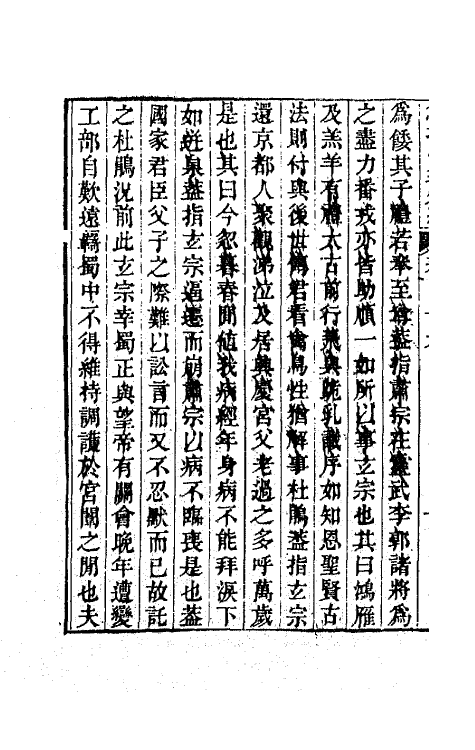 為餧其子禮若奉至尊蓋指肅宗在靈武李郭諸將為
之盡力番戎亦皆助順一如所以事玄宗也其曰鴻雁
及羔羊有禮太古前行飛與跪乳識序如知恩聖賢古
法則付與後世傳君看禽鳥性猶解事杜鵑蓋指玄宗
還京都人聚觀涕泣及居興慶宮父老過之多呼萬歲
是也其曰今忽暮春間值我病經年身病不能拜淚下
如迸泉蓋指玄宗逼遷而崩肅宗以病不臨喪是也蓋
國家君臣父子之際難以訟言而又不忍默而已故託
之杜鵑況前此玄宗幸蜀正與望帝有關會晚年遭變
工部自歎遠羇蜀中不得維持調護於宮闈之間也夫